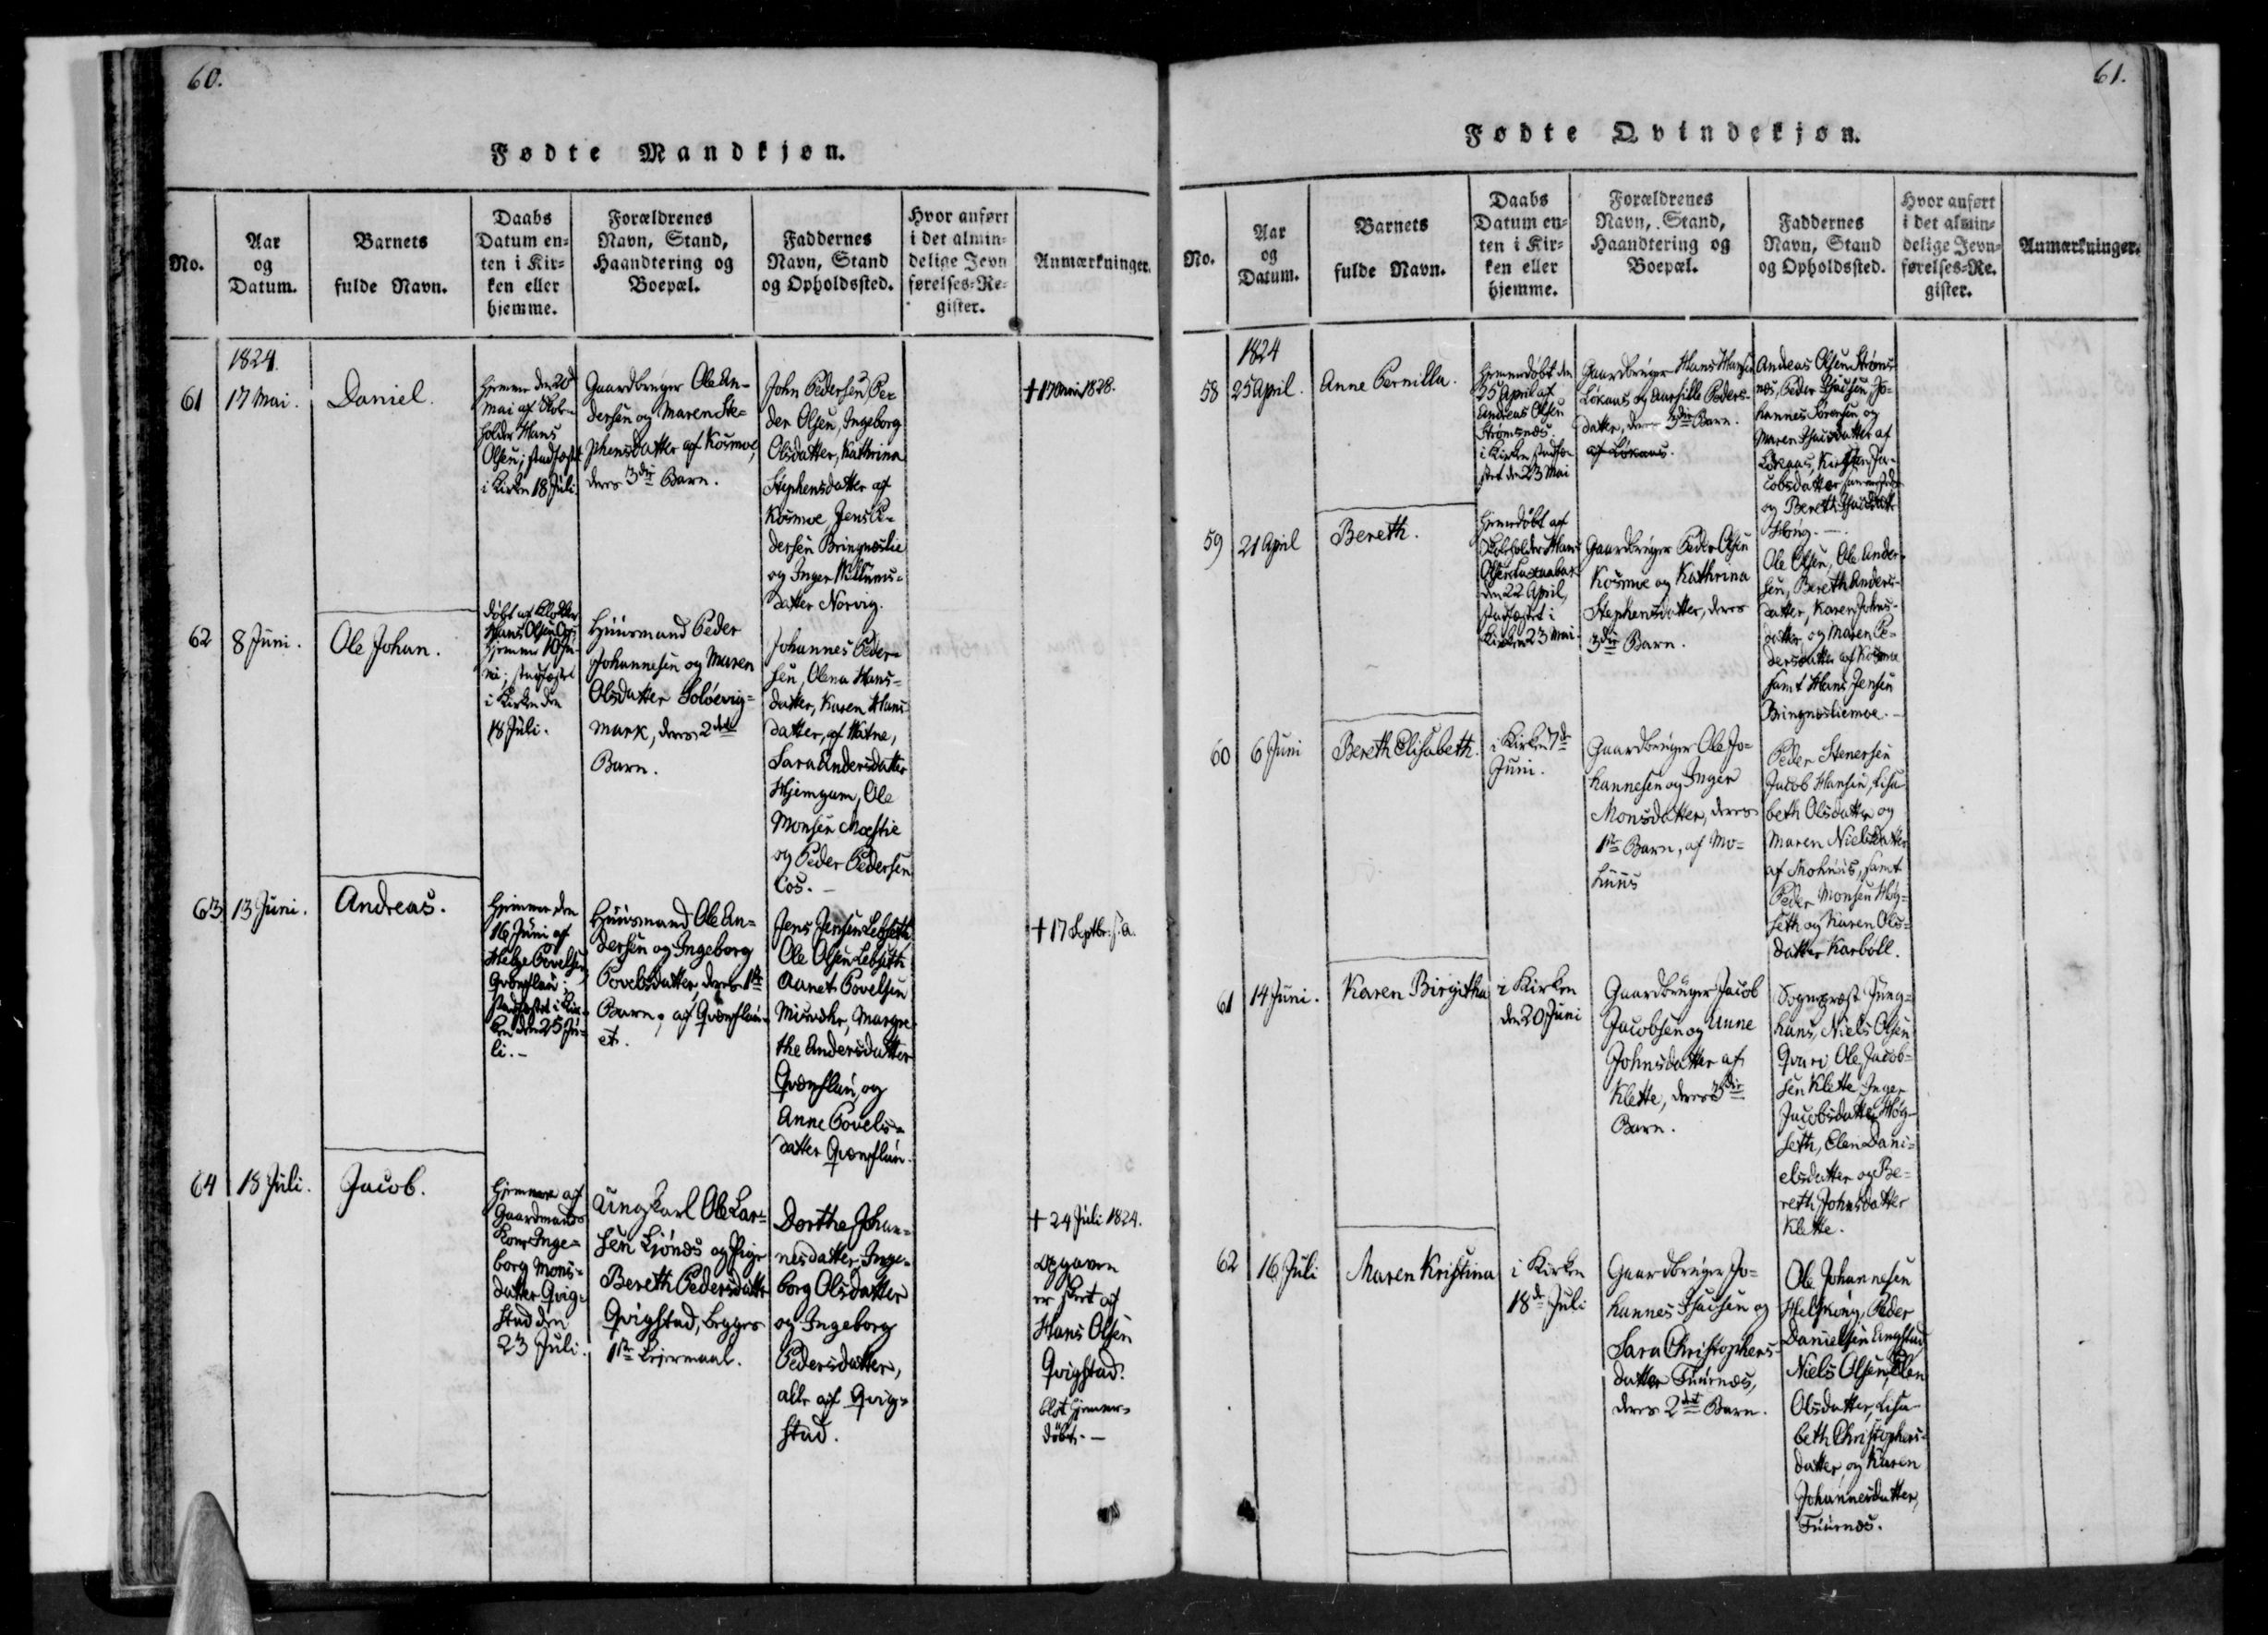 60.
Fødte Mandkjøn.
No.
Aar
og
Datum.
Barnets
fulde Navn.
Daabs
Datum en-
ten i Kir-
ken eller
hjemme.
Forældrenes
Navn, Stand,
Haandtering og
Boepæl.
Faddernes
Navn, Stand
og Opholdssted.
Hvor anført
i det almin-
delige Jevn
førelses-Re-
gister.
Anmærkninger.
1824.
61
17 Mai.
Daniel.
Hjemme den 20d
Mai af Skole-
holder Hans
Olsen; stadfæstet
i Kirken 18 Juli
Gaardbruger Ole An-
dersen og Maren Ste-
phensdatter af Kosmoe,
deres 3die Barn.
John Pedersen, Pe-
der Olsen, Ingeborg
Olsdatter, Kathrina
Stephensdatter af
Kosmoe, Jens Pe-
dersen Bringnæslie
og Inger Willums-
datter Norvig.
+ 17 Mai 1828.
62
8 Juni.
Ole Johan.
døbt af Klokker
Hans Olsen
hjemme 10 Ju-
ni; stadfæstet
i Kirken den
18 Juli.
Huusmand Peder
Johannesen og Maren
Olsdatter Soløevig-
mark, deres 2det
Barn.
Johannes Peder-
sen, Olena Hans-
datter, Karen Hans
datter, af Watne,
Sara Andersdatter
Hjemgam, Ole
Monsen Mæstie
og Peder Pedersen
Cos. -
63
13 Juni.
Andreas.
Hjemme den
16 Juni af
Helge Povelsen
Qvænflau;
stadfæstet i Kir-
ken den 25 Ju-
li. -
Huusmand Ole An-
dersen og Ingeborg
Povelsdatter, deres 1ste
Barn, af Qvænflau-
et.
Jens Jensen Lebseth
Ole Olsen Lebseth
Aanet Povelsen
Misvær, Margre
the Andersdatter
Qvænflau, og
Anne Povels-
datter Qvænflau.
+ 17 Septbr. s. a.
64
18 Juli.
Jacob.
Hjemme af
Gaardmands
Kone Inge-
borg Mons-
datter Qvig-
stad den
23 Juli.
Ungkarl Ole Lar-
sen Ljønæs og Pige
Bereth Pedersdatter
Qvigstad, begges
1ste Leiermaal.
Dorthe Johan-
nesdatter, Inge-
borg Olsdatter
og Ingeborg
Pedersdatter,
alle af Qvig-
stad.
+ 24 Juli 1824.
Opgaven
er skeet af
Hans Olsen
Qvigstad.
blot hjemme-
døbt. -
61.
Fødte Qvindekjøn.
No.
Aar
og
Datum.
Barnets
fulde Navn.
Daabs
Datum en-
ten i Kir-
ken eller
hjemme.
Forældrenes
Navn, Stand,
Haandtering og
Boepæl.
Faddernes
Navn, Stand
og Opholdssted.
Hvor anført
i det almin-
delige Jevn-
førelses-Re.
gister.
Anmærkninger.
1824
58
25 April.
Anne Pernilla.
Hjemmedøbt den
25 April af
Andreas Olsen
Strømsnæs.
i Kirken stadfæ-
stet den 23 Mai
Gaardbruger Hans Hansen
Løkaas og Aarsille Peders-
datter, deres 3die Barn.
af Løkaas.
Andreas Olsen Strøms
næs, Peder Isacsen, Jo-
hannes Sørensen og
Maren Isacsdatter af
Løkaas, Kirsten Ja-
cobsdatter sammesteds
og Bereth Isacsdatter
Høng. -
59
21 April
Bereth.
Hjemmedøbt af
Skoleholder Hans
Olsen
den 22 April,
stadfæstet i
Kirken 23 Mai
Gaardbruger Peder Olsen
Kosmoe og Kathrina
Stephensdatter, deres
3die Barn.
Ole Olsen, Ole Ander-
sen, Bereth Anders-
datter, Karen Johns-
datter, og Maren Pe-
dersdatter af Kosmoe
samt Hans Jensen
Bringnæsliemoe. -
60
6 Juni
Bereth Elisabeth.
i Kirken 7de
Juni.
Gaardbruger Ole Jo-
hannesen og Inger
Monsdatter, deres
1ste Barn, af Mo-
huus
Peder Stenersen
Jacob Hansen, Lisa
beth Olsdatter og
Maren Nielsdatter
af Mohuus, samt
Peder Monsen Høg-
seth og Karen Ols-
datter Karbøll.
61
14 Juni.
Karen Birgitha
i Kirken
den 20 Juni
Gaardbruger Jacob
Jacobsen og Anne
Johnsdatter af
Klette, deres 3die
Barn.
Sognepræst Jung-
hans, Niels Olsen
Qvari Ole Jacob-
sen Klette, Inger
Jacobsdatter Høg-
seth, Elen Dani-
elsdatter og Be-
reth Johnsdatter
Klette.
62
16 Juli
Maren Kristina
i Kirken
18de Juli
Gaardbruger Jo-
hannes Isacsen og
Sara Christophers-
datter Fuurnæs,
deres 2det Barn.
Ole Johannesen
Helskong, Peder
Danielsen Engstad
Niels Olsen, Elen
Olsdatter, Lisa-
beth Christophers-
datter, og Karen
Johannesdatter,
Fuurnæs.